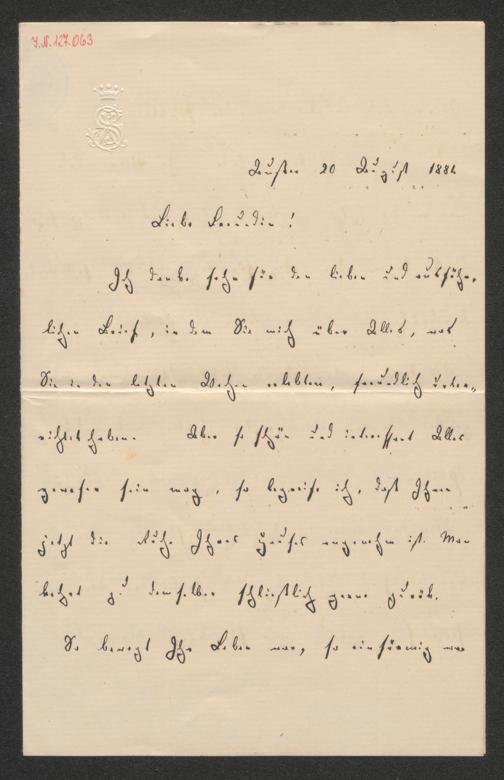 I.N. 127.063
Aussee 20 August 1882
Liebe Freundin!
Ich danke sehr für den lieben und ausführ-
lichen Brief, in dem Sie mich über Alles, was
Sie in den letzten Wochen erlebten, freundlich unter-
richtet haben. Aber so schön und interessant Alles
gewesen sein mag, so begreife ich, daß Ihnen
jetzt die Ruhe Ihres Hauses angenehm ist. Man
kehrt zu demselben schließlich gerne zurück.
So bewegt Ihr Leben war, so einförmig war